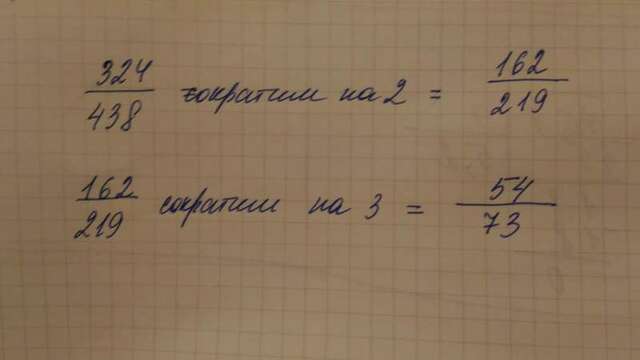 324/438 сократим на 2 = 162/219
162/219 сократим на 3 = 54/73